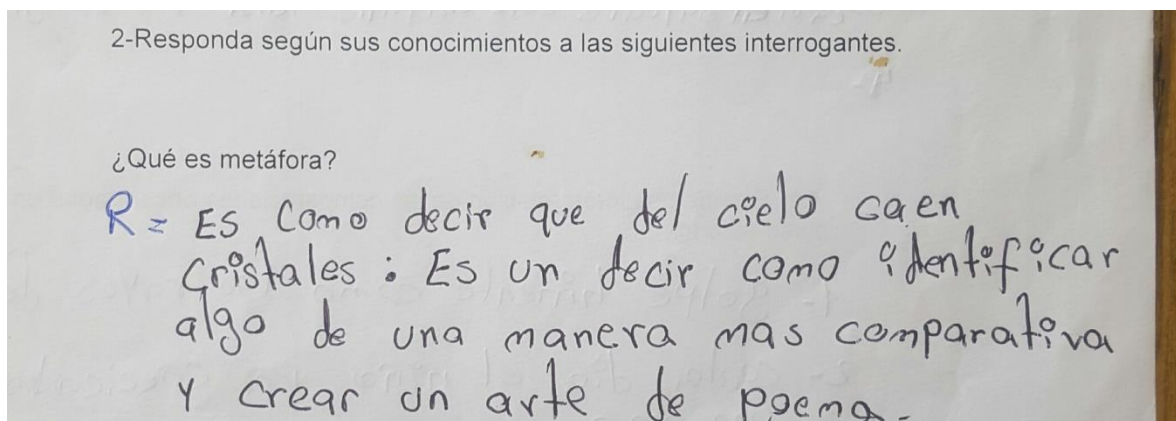 2-Responda según sus conocimientos a las siguientes interrogantes.
¿Qué es metáfora?
R= ES como decir que del cielo caen
cristales: Es un decir como identificar
algo de una manera mas comparativa
y crear un arte de poema.